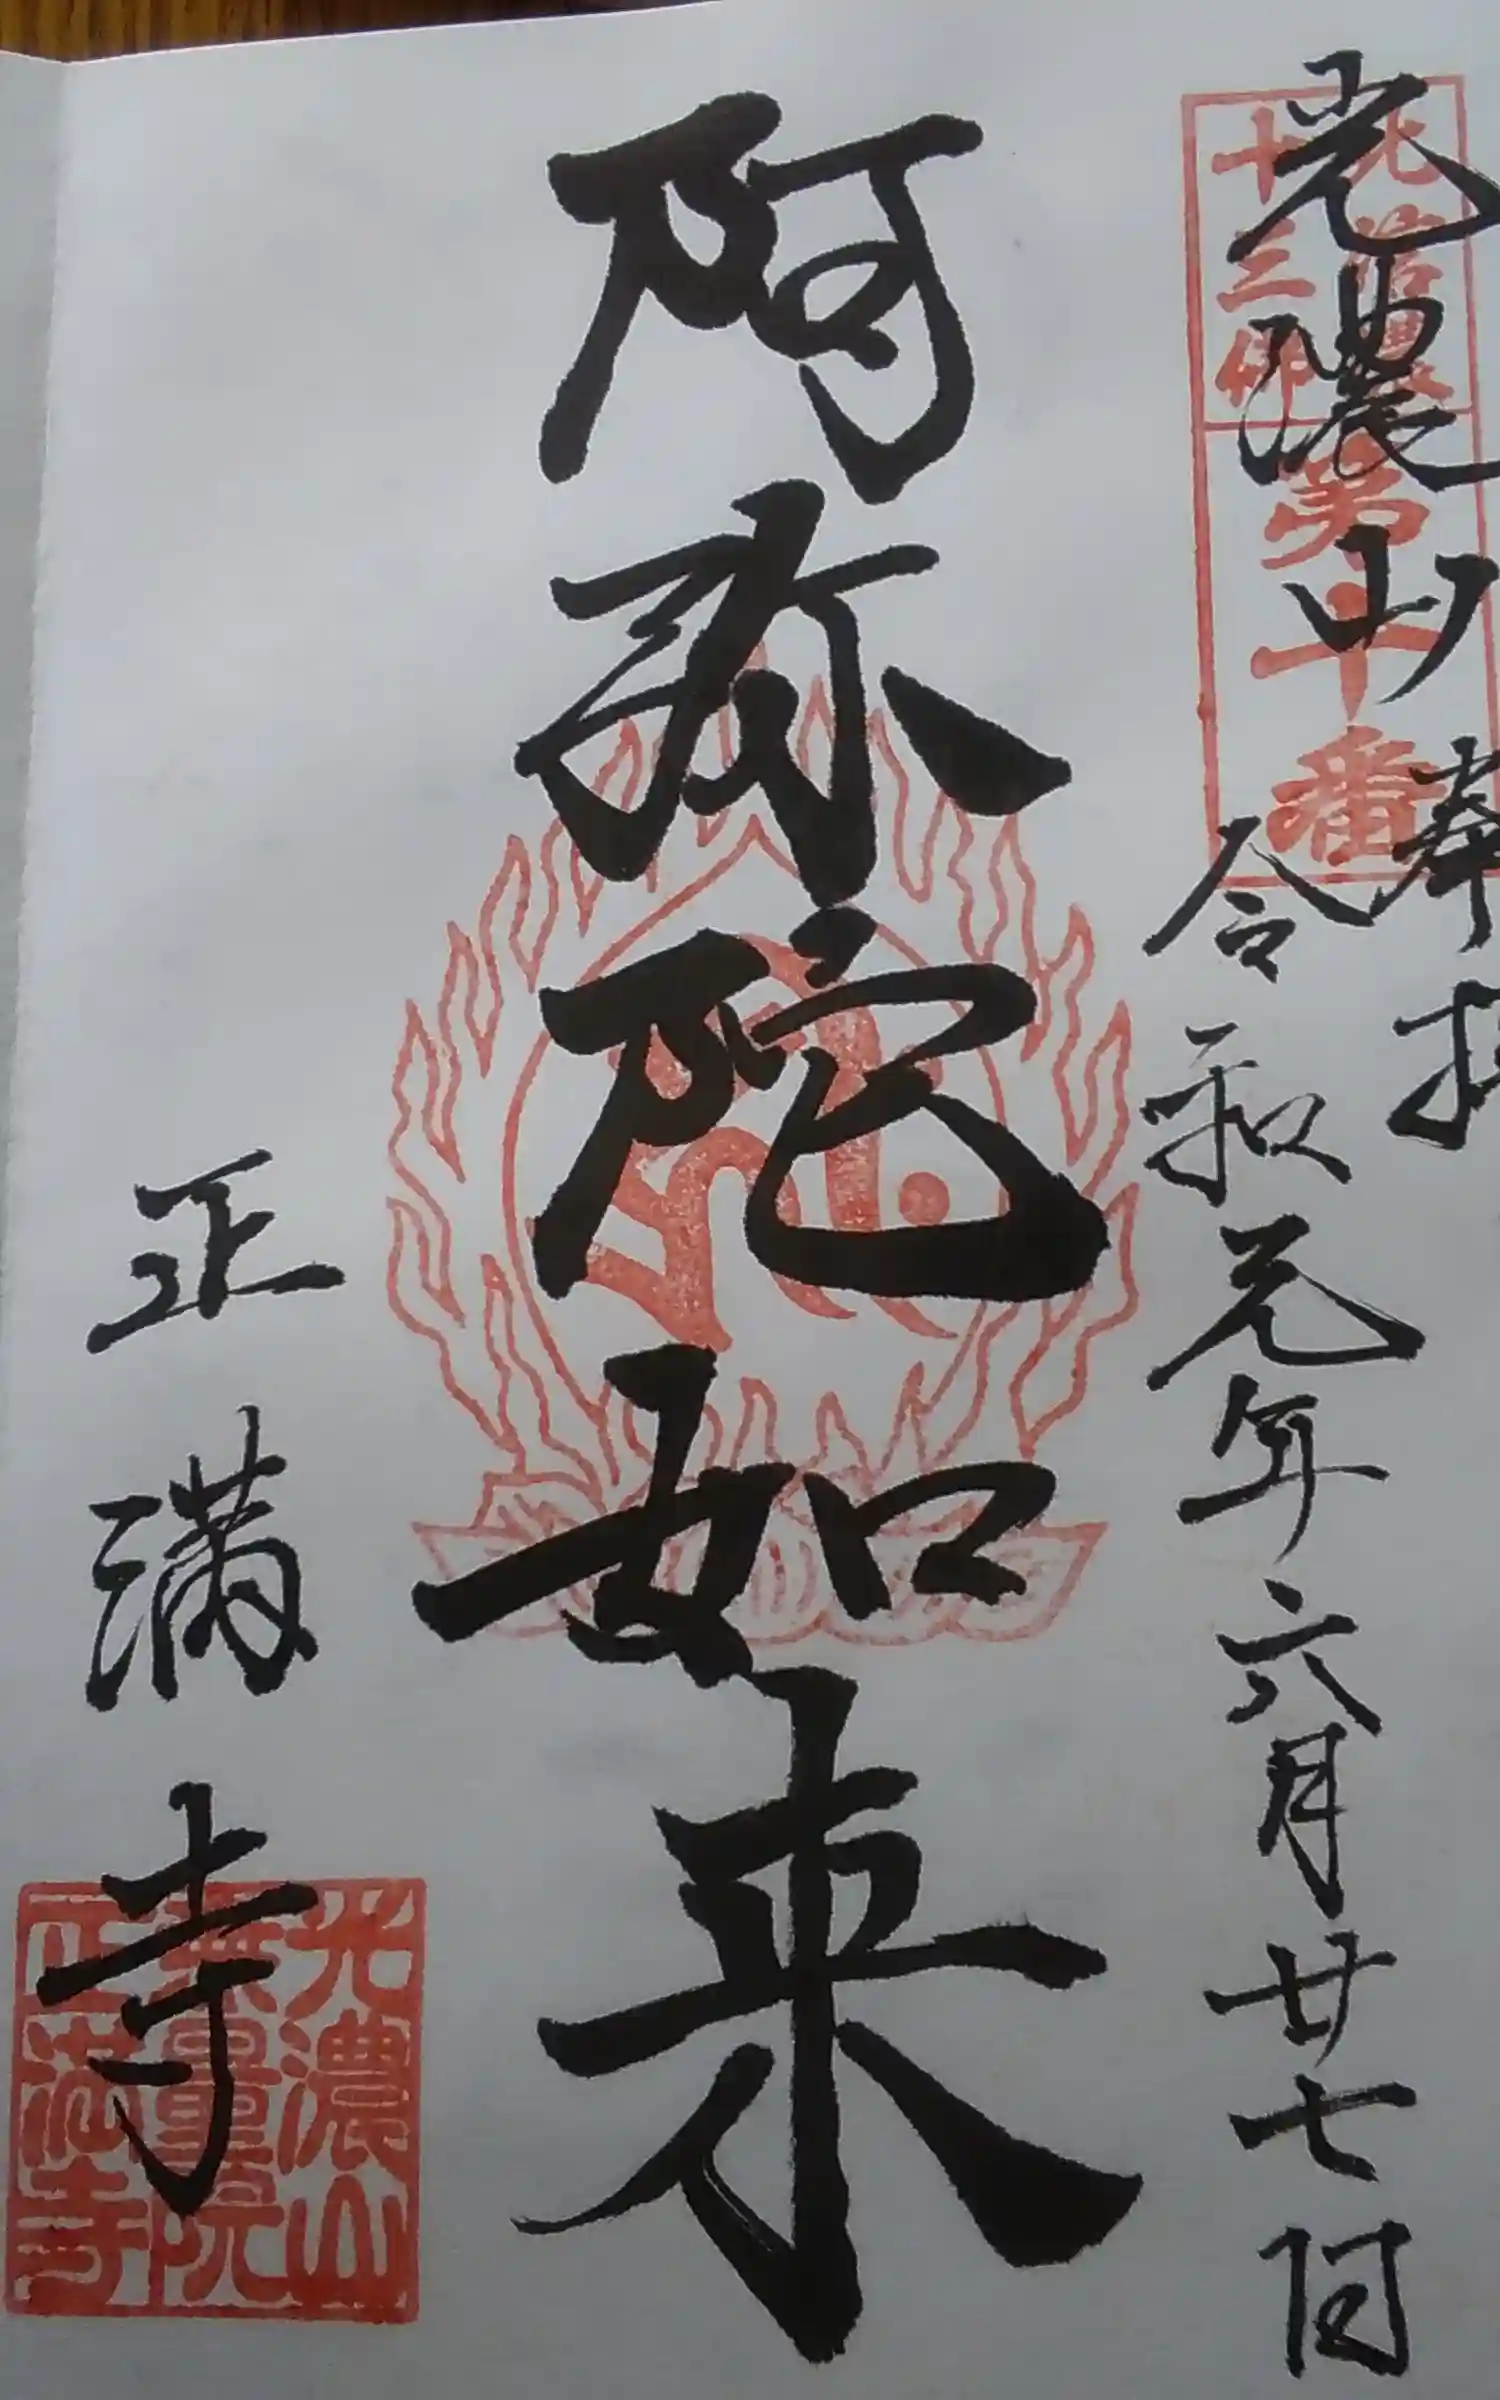 光濃山
奉拝
令和元年六月廿七日
阿弥陀如来
正満寺
十三佛
第十番
光濃山
無量院
正満寺